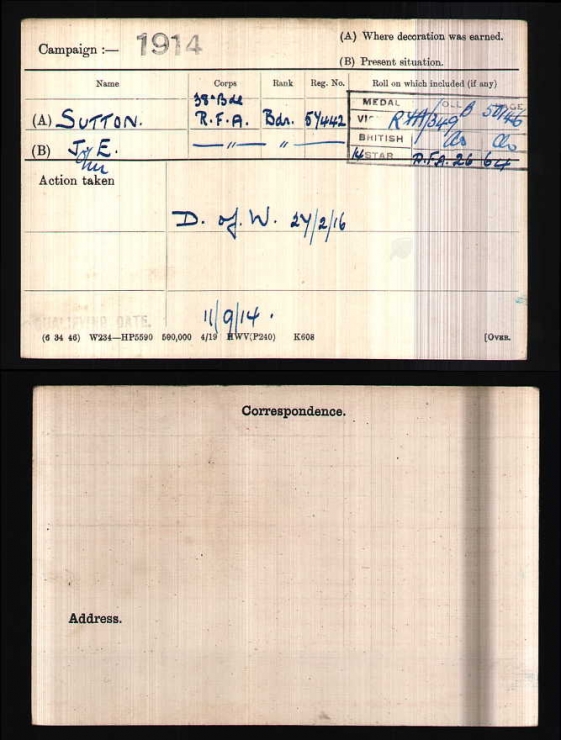 Campaign :— 1914
(A) Where decoration was earned.
(B) Present situation.
Name Corps Rank Reg. No. Roll on which included (if any)
MEDAL
38th Bde
(A) SUTTON. R.F.A. Bdr. 57442
BRITISH do do
(B) J. E. — " — " —
14 STAR R.F.A. 26 64
Action taken
D. of W. 27/2/16
11/9/14.
QUALIFYING DATE.
(6 34 46) W234—HP5590 500,000 4/19 HWV(P240) K608 [OVER.
Correspondence.
Address.